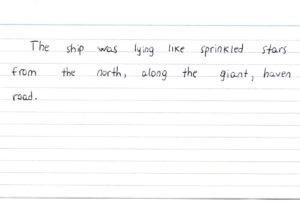 The ship was lying like sprinkled stars
from the north, along the giant, haven
road.